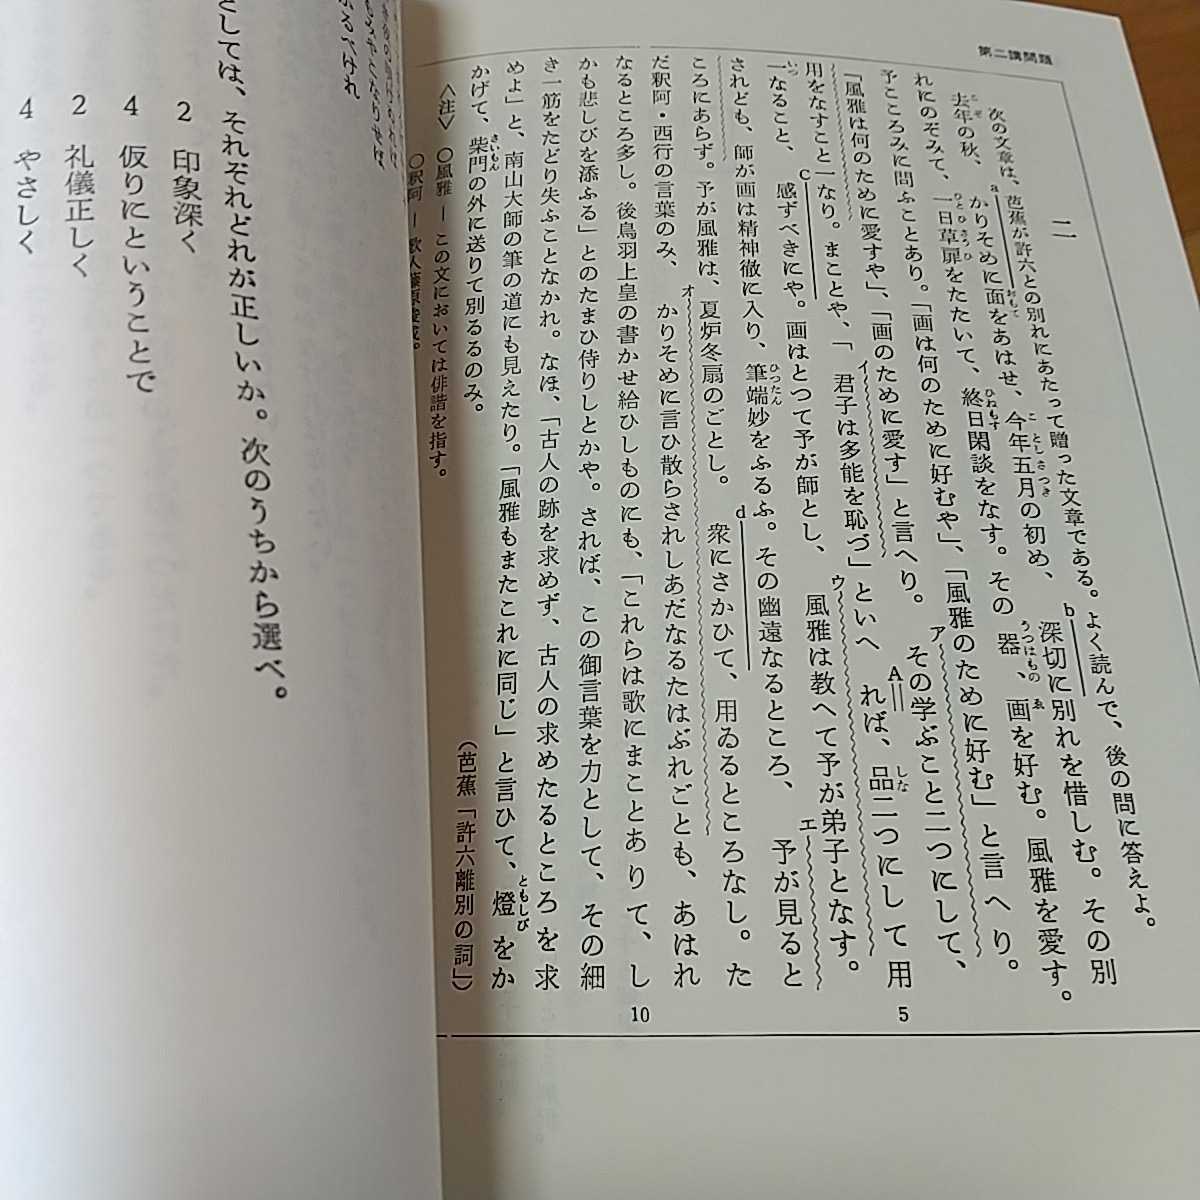 第二講問題
二
次の文章は、芭蕉が許六との別れにあたって贈った文章である。よく読んで、後の問に答えよ。
去年の秋、かりそめに面をあはせ、今年五月の初め、深切に別れを惜しむ。その別
れにのぞみて、一日草扉をたたいて、終日閑談をなす。その器、画を好む。風雅を愛す。
予こころみに問ふことあり。「画は何のために好むや」、「風雅のために好む」と言へり。
「風雅は何のために愛すや」、「画のために愛す」と言へり。その学ぶこと二つにして、
用をなすこと一なり。まことや、「君子は多能を恥づ」といへれば、品二つにして用
一なること、感ずべきにや。画はとつて予が師とし、風雅は教へて予が弟子となす。
されども、師が画は精神徹に入り、筆端妙をふるふ。その幽遠なるところ、予が見ると
ころにあらず。予が風雅は、夏炉冬扇のごとし。衆にさかひて、用ゐるところなし。た
だ釈阿・西行の言葉のみ、かりそめに言ひ散らされしあだなるたはぶれごとも、あはれ
なるところ多し。後鳥羽上皇の書かせ給ひしものにも、「これらは歌にまことありて、し
かも悲しびを添ふる」とのたまひ侍りしとかや。されば、この御言葉を力として、その細
き一筋をたどり失ふことなかれ。なほ、「古人の跡を求めず、古人の求めたるところを求
めよ」と、南山大師の筆の道にも見えたり。「風雅もまたこれに同じ」と言ひて、燈をか
かげて、柴門の外に送りて別るるのみ。
（芭蕉「許六離別の詞」）
〈注〉 ○風雅 ― この文においては俳諧を指す。
○釈阿 ― 歌人藤原俊成。
5
10
となりせば、
ふるべけれ
としては、それぞれどれが正しいか。次のうちから選べ。
2 印象深く
4 仮りにということで
2 礼儀正しく
4 やさしく